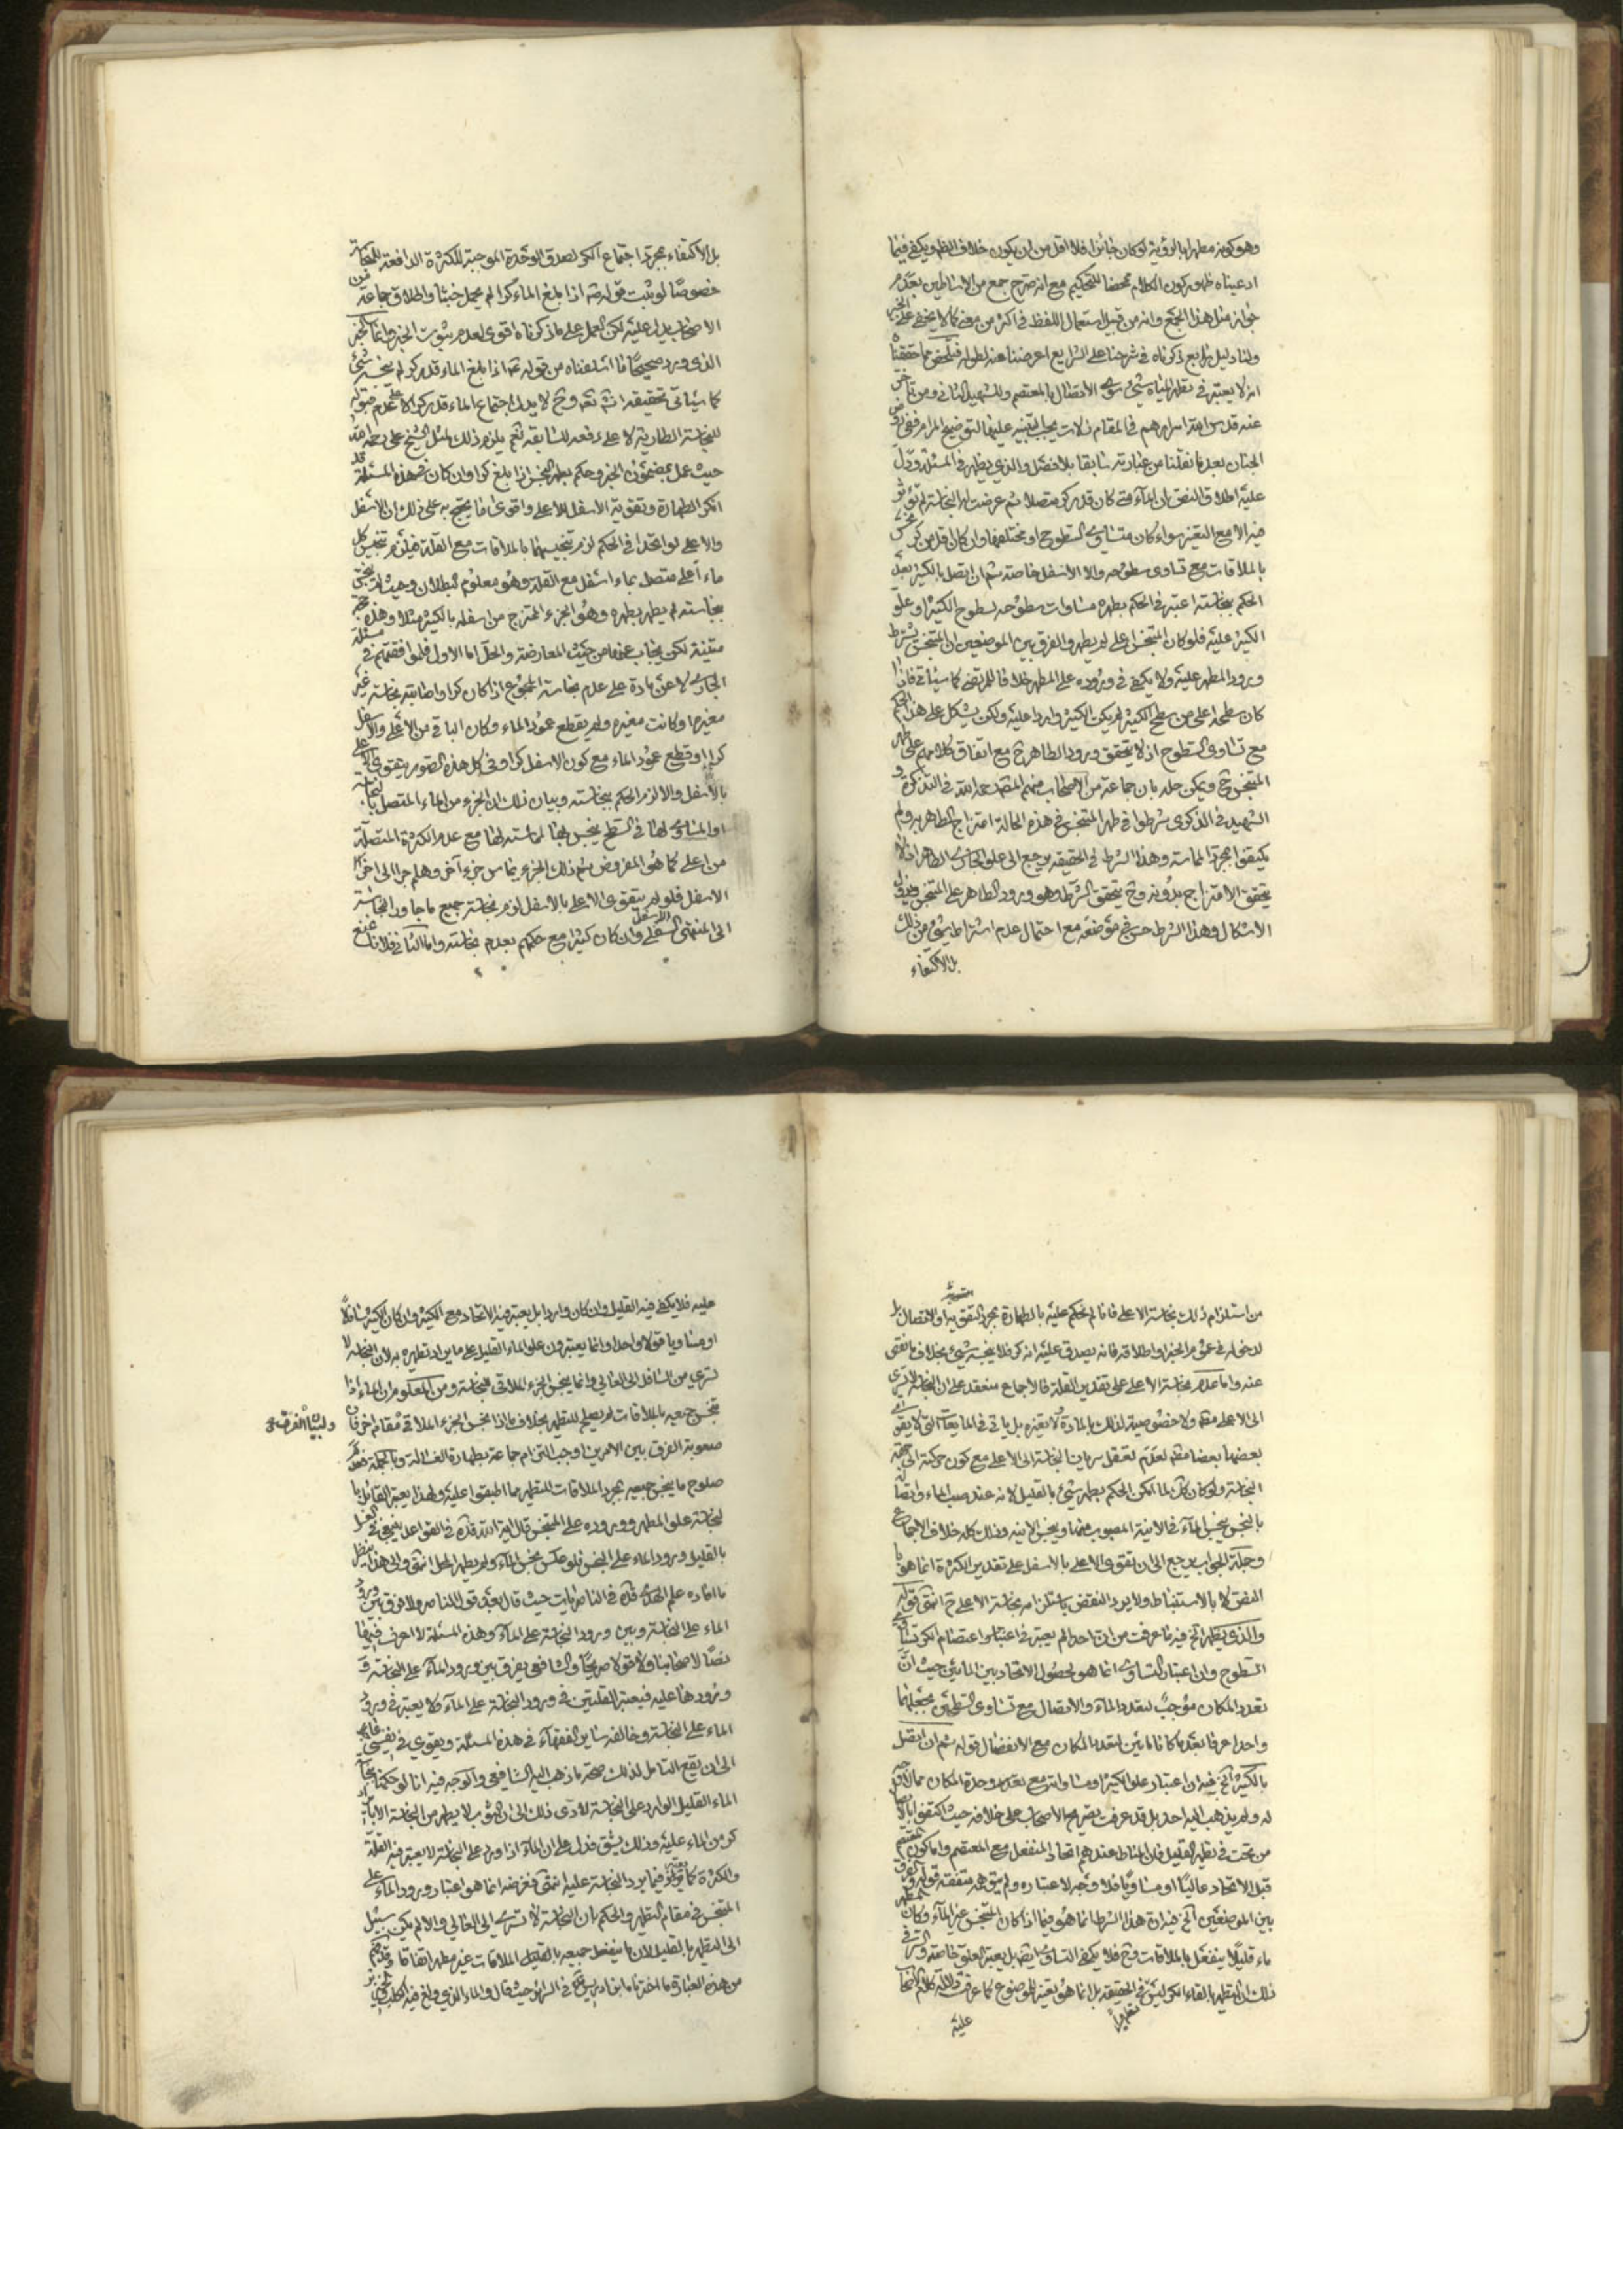 وهو كونه مطهرا بالرؤية لو كان جائزا فلا اقل من ان يكون خلاف الظهور يكفي فيما
ادعيناه ظهور كون الكلام محضا للتحكيم مع انه صرح جمع من الاساطين بعدم
جواز مثل هذا الجمع وانه من قبيل استعمال اللفظ في اكثر من معنى كما لا يخفى على الخبير
ولنا دليل رابع ذكرناه في شرحنا على الشرايع اعرضنا عنه لطوله فتلخص مما حققناه
انه لا يعتبر في تطهر المياه شيء سوى الاتصال بالمعتصم وللشهيد الثاني ومن تاخر
عنه قدس الله اسرارهم في المقام زلات يجب التنبيه عليها لتوضيح المرام ففي روض
الجنان بعد ما نقلنا من عبارته سابقا بلا فصل والذي يظهر في المسئلة ودل
عليه اطلاق النص ان الماء متى كان قدر كر متصلا ثم عرضت له النجاسة لم تؤثر
فيه الا مع التغير سواء كان متساوي السطوح او مختلفها وان كان اقل من كر نجس
بالملاقات مع تساوي سطوحه والا الاسفل خاصة ثم ان اتصل بالكثير بعد
الحكم بنجاسته اعتبر في الحكم بطهره مساوات سطوحه لسطوح الكثير او علو
الكثير عليه فلو كان المتنجس اعلى لم يطهر والفرق بين الموضعين ان المتنجس يشترط
ورود المطهر عليه ولا يكفي في وروده على المطهر خلافا للمرتضى كما سيأتي فاذا
كان سطحه اعلى من سطح الكثير لم يكن الكثير واردا عليه ولكن يشكل على هذا الحكم
مع تساوي السطوح اذ لا يتحقق ورود الطاهر ح مع اتفاق كلامهم على طهر
المتنجس ح ويمكن حله بان جماعة من الاصحاب منهم المص رحمه الله في التذكرة و
الشهيد في الذكرى شرطوا في طهر المتنجس في هذه الحالة امتزاج الطاهر به ولم
يكتفوا بمجرد المماسة وهذا الشرط في الحقيقة يرجع الى علو الجاري الطاهر اذ لا
يتحقق الامتزاج بدونه وح يتحقق الشرط وهو ورود الطاهر على المتنجس ويزول
الاشكال وهذا الشرط حسن في موضعه مع احتمال عدم اشتراط شيء من ذلك
بل الاكتفاء
بل الاكتفاء بمجرد اجتماع الكر لصدق الوحدة الموجبة للكثرة الدافعة للنجاسة
خصوصا لو ثبت قوله ع اذا بلغ الماء كرا لم يحمل خبثا واطلاق جماعة من
الاصحاب يدل عليه لكن العمل على ما ذكرناه اقوى لعدم ثبوت الخبر وانما الخبر
الذي ورد صحيحا ما اسلفناه من قوله ع اذا بلغ الماء قدر كر لم ينجسه شئ
كما سيأتي تحقيقه انش تعه وح لا يدل اجتماع الماء قدر كر الا على عدم قبوله
للنجاسة الطارية لا على رفعه للسابقة نعم يلزم ذلك لمثل الشيخ علي رحمه الله
حيث عمل بمضمون الخبر وحكم بطهر النجس اذا بلغ كرا وان كان في هذه المسئلة قد
انكر الطهارة وتقوية الاسفل للاعلى واقوى ما يحتج به على ذلك ان الاسفل
والاعلى لو اتحدا في الحكم لزم تنجيسهما بالملاقات مع القلة فيلزم تنجس كل
ماء اعلى متصل بماء اسفل مع القلة وهو معلوم البطلان وحيث لم ينجس
بنجاسته لم يطهر بطهره وهو الجزء الممتزج من اسفله بالكثير مثلا وهذه حجة
متينة لكن يجاب عنها من حيث المعارضة والحل اما الاول فلموافقتهم في مسئلة
الجاري لا عن مادة على عدم نجاسة المجموع اذا كان كرا واصابته نجاسة غير
مغيره او كانت مغيره ولم يقطع عمود الماء وكان الباقي من الاعلى والاسفل
كرا او قطع عمود الماء مع كون الاسفل كرا وفي كل هذه الصور يتقوى الاعلى
بالاسفل والا لزم الحكم بنجاسته وبيان ذلك ان الجزء من الماء المتصل بالنجاسة
او المساوي لها في السطح ينجس بها لمماسته لها مع عدم الكثرة المتصلة
من اعلى كما هو المفروض ثم ذلك الجزء يماس جزء آخر وهلم جرا الى اخر
الاسفل فلو لم يتقوى الاعلى بالاسفل لزم نجاسة جميع ما جاور النجاسة
الى المنتهى السفلى وان كان كثيرا مع حكمهم بعدم نجاسته واما الثاني فلانا نمنع
من استلزام ذلك نجاسة الاعلى فانا لم نحكم عليه بالطهارة بمجرد التقوية او الاتصال بل
لدخوله في عموم الخبر او اطلاقه فانه يصدق عليه انه كر فلا ينجسه شيء بخلاف ما نقص
عنه واما عدم نجاسة الاعلى على تقدير القلة فالاجماع منعقد على ان النجاسة لا تسري
الى الاعلى مطلقا ولا خصوصية لذلك بالمادة ولا بغيره بل ياتي في المايعات التي لا يقوى
بعضها بعضا مطلقا لعدم تعقل سريان النجاسة الى الاعلى مع كون حركته الى جهة
النجاسة ولو كان كل لما امكن الحكم بطهر شيئ بالقليل لانه عند صب الماء واتصاله
بالنجس ينجس الماء في الآنية المصبوب منها وينجس الانيه وذلك كله خلاف الاجماع
وجلة الجواب يرجع الى ان تقوى الاعلى بالاسفل على تقدير الكثرة انما هو با
النص لا بالاستنباط ولا يرد النقض باستلزام نجاسة الاعلى ح انتهى قوله
والذي يظهر الخ فيه ما عرفت من ان احدا لم يعتبر في اعتبار اعتصام الكر تساوي
السطوح وان اعتبار التساوي انما هو لحصول الاتحاد بين المائين حيث ان
تعدد المكان موجب لتعدد الماء والاتصال مع تساوي السطحين يجعلهما
واحدا عرفا بعد ما كانا مائين لتعدد المكان مع الانفصال قوله ثم ان اتصل
بالكثير الخ فيه ان اعتبار علو الكثير او مساواته مع تعدد وحدة المكان مما لا وجه
له ولم يذهب اليه احد بل قد عرفت تصريح الاصحاب على خلافه حيث اكتفوا بالاتصال
من تحت في تطهير القليل فان المناط عندهم اتحاد المنفعل مع المعتصم واما كون المعتصم
قبل الاتحاد عاليا او مساويا فلا وجه لاعتباره ولم يتوهمه متفقه قوله والفرق
بين الموضعين الخ فيه ان هذا الشرط انما هو فيما اذا كان المتنجس غير الماء وكان المطهر
ماء قليلا ينفعل بالملاقات وح فلا يكفي التساوي ايضا بل يعتبر العلو خاصة والسر في
ذلك ان التطهر بالقاء الكر ليس في الحقيقة بل انما هو لتغير الموضوع كما عرفت دلالة كلام الاصحاب
تطهيرا
عليه
عليه فلا يكفي فيه القليل وان كان واردا بل يعتبر فيه الاتحاد مع الكثير وان كان الكثير سافلا
او مساويا قولا واحدا وانما يعتبرون علو الماء القليل على ما يراد تطهيره به لان النجاسة لا
تسري من السافل الى العالي وانما ينجس الجزء الملاقي للنجاسة ومن المعلوم ان الماء اذا
تنجس جميعه بالملاقات لم يصلح للتطهير بخلاف ما اذا نجس الجزء الملاقي في مقام اخر فان
ولبيان الفرق
صعوبة الفرق بين الامرين اوجب التزام جماعة بطهارة الغسالة وبالجملة فعدم
صلوح ما ينجس جميعه بمجرد الملاقات للتطهير مما اطبقوا عليه ولهذا يعتبر القائل با
لنجاسة علو المطهر ووروده على المتنجس قال اية الله قده في القواعد ينبغي في الغسل
بالقليل ورود الماء على النجس فلو عكس نجس الماء ولم يطهر المحل انتهى والى هذا ينظر
ما افاده علم الهدى قده في الناصريات حيث قال بعد قول الناصر ولا فرق بين ورود
الماء على النجاسة وبين ورود النجاسة على الماء وهذه المسئلة لا اعرف فيها
نصا لاصحابنا ولا قولا صريحا والشافعي يفرق بين ورود الماء على النجاسة و
ورودها عليه فيعتبر القلتين في ورود النجاسة على الماء ولا يعتبر في ورود
الماء على النجاسة وخالفه سائر الفقهاء في هذه المسئلة ويقوي في نفسي عاجلا
الى ان يقع التامل لذلك صحة ما ذهب اليه الشافعي والوجه فيه انا لو حكمنا بنجاسة
الماء القليل الوارد على النجاسة لادى ذلك الى ان الثوب لا يطهر من النجاسة الا بايراد
كر من الماء عليه وذلك يشق فدل على ان الماء اذا ورد على النجاسة لا يعتبر فيه القلة
والكثرة كما يعتبر فيما يرد النجاسة عليه انتهى فغرضه انما هو اعتبار ورود الماء على
المتنجس في مقام التطهير والحكم بان النجاسة لا تسري الى العالي والا لم يكن سبيل
الى التطهير بالقليل لان ما ينفعل جميعه بالقليل الملاقات غير مطهر اتفاقا وقد فهم
من هذه العبارة ما اخترنا ابن ادريس في السرائر حيث قال والماء الذي ولغ فيه الكلب والخنزير